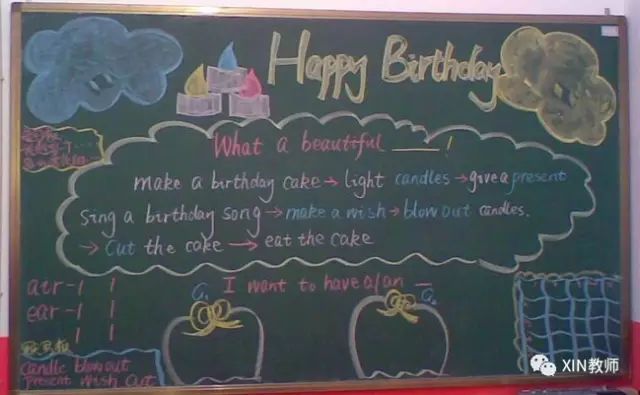 Happy Birthday
What a beautiful ____!
make a birthday cake → light candles → give a present
sing a birthday song → make a wish → blow out candles.
→ Cut the cake → eat the cake
I want to have a/an __
G1
G2
air-1 1
ear-1 1
1 1
Candle blow out
Present Wish Cut
XIN教师